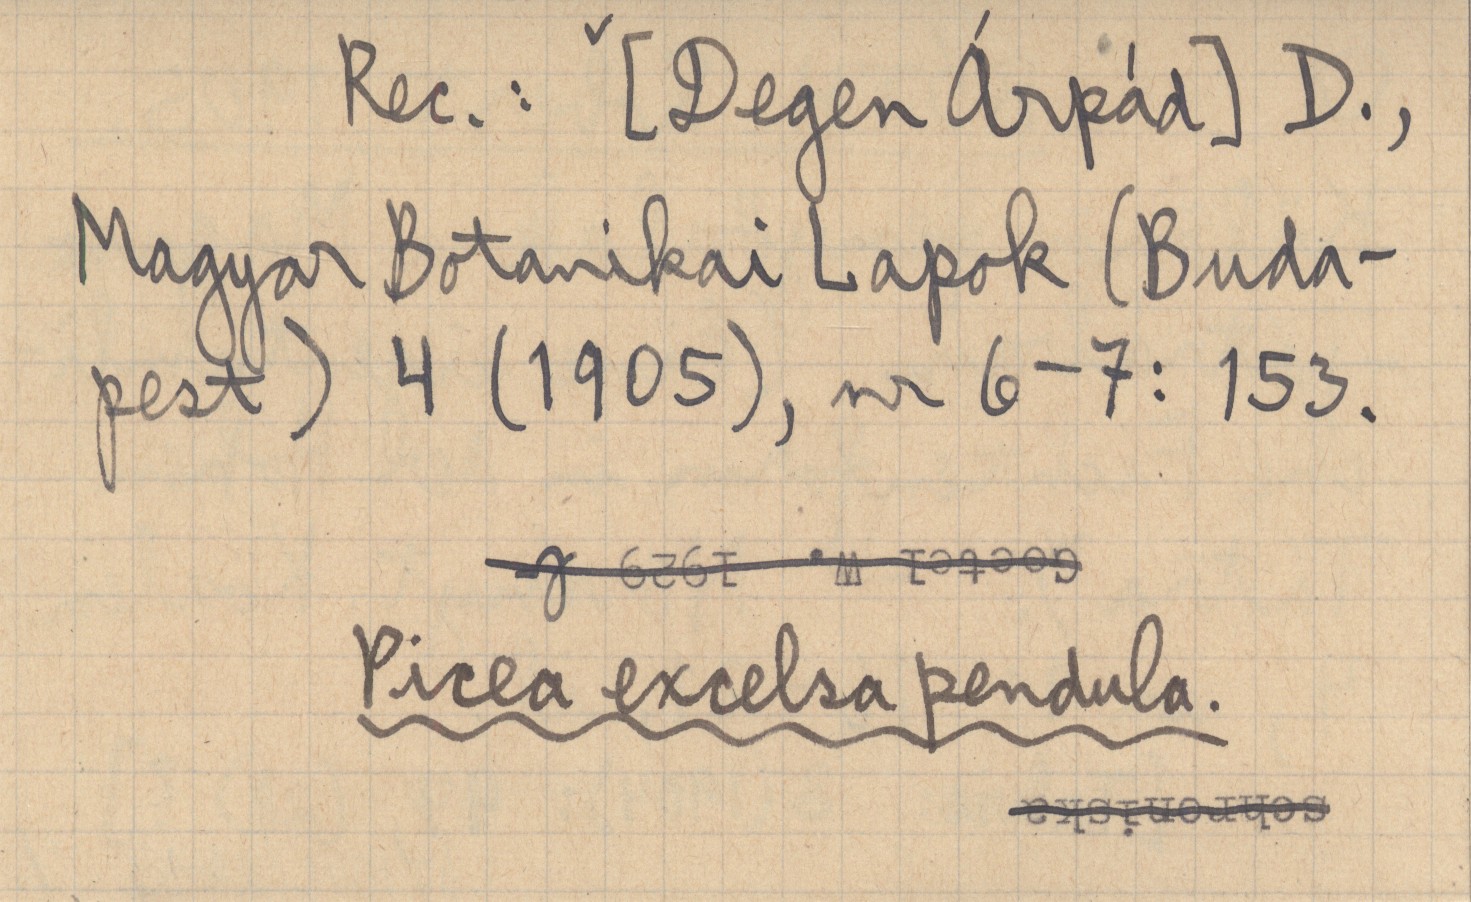 Rec.: ˇ[Degen Árpád] D.,
Magyar Botanikai Lapok (Buda-
pest) 4 (1905), nr 6-7: 153.
Goetel W. 1929
Picea excelsa pendula.
schroniska